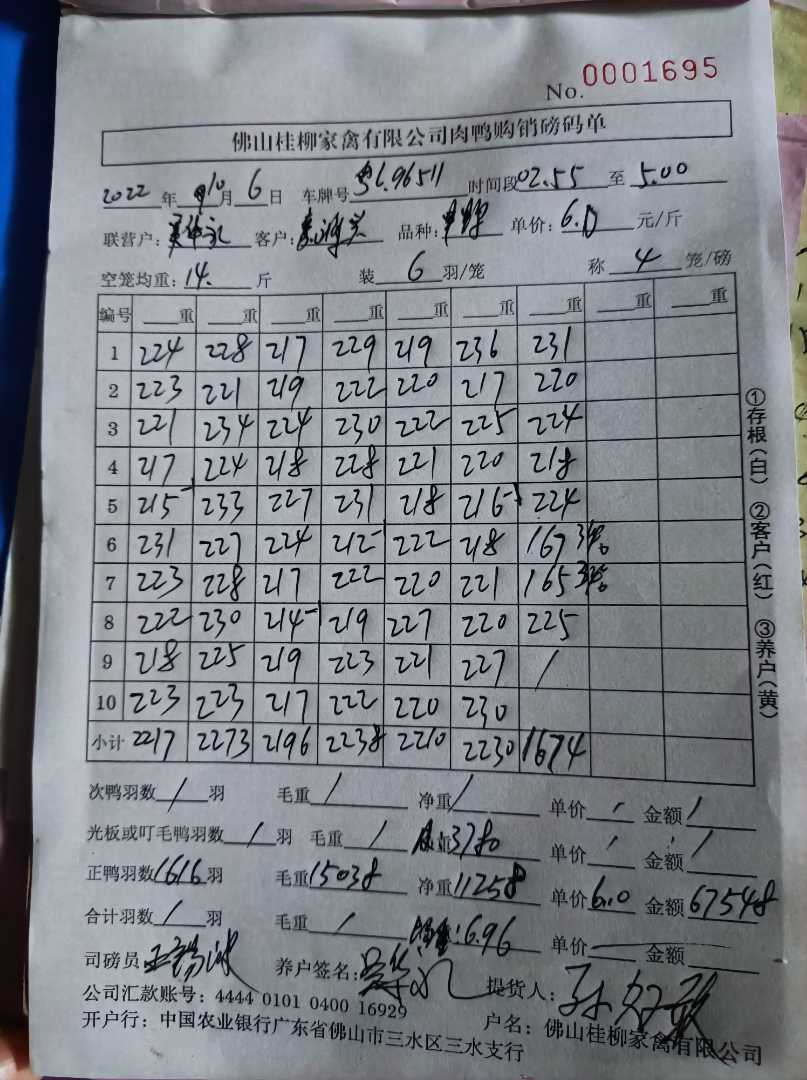 No. 0001695
佛山桂柳家禽有限公司肉鸭购销磅码单
2022 年 10 月 6 日 车牌号 96511 时间段 02.55 至 5.00
联营户: 客户: 品种: 单价: 6.0 元/斤
空笼均重: 14. 斤 装 6 羽/笼 称 4 笼/磅
编号 重 重 重 重 重 重 重 重 重
1 224 228 217 229 219 236 231
2 223 221 219 222 220 217 220
3 221 234 224 230 222 225 224
4 217 224 218 228 221 220 218
5 215 233 227 231 218 216 224
6 231 227 224 212 222 218 167 3笼
7 223 228 217 222 220 221 165 3笼
8 222 230 214 219 227 220 225
9 218 225 219 223 221 227 /
10 223 223 217 222 220 230
小计 2217 2273 2196 2238 2210 2230 1674
次鸭羽数 / 羽 毛重 / 净重 / 单价 / 金额 /
光板或叮毛鸭羽数 / 羽 毛重 / 3780 单价 / 金额 /
正鸭羽数 1616 羽 毛重 15038 净重 11258 单价 6.0 金额 67548
合计羽数 / 羽 毛重 / : 6.96 单价 金额
司磅员 养户签名: 提货人:
公司汇款账号: 4444 0101 0400 16929
开户行: 中国农业银行广东省佛山市三水区三水支行 户名: 佛山桂柳家禽有限公司
①存根(白) ②客户(红) ③养户(黄)